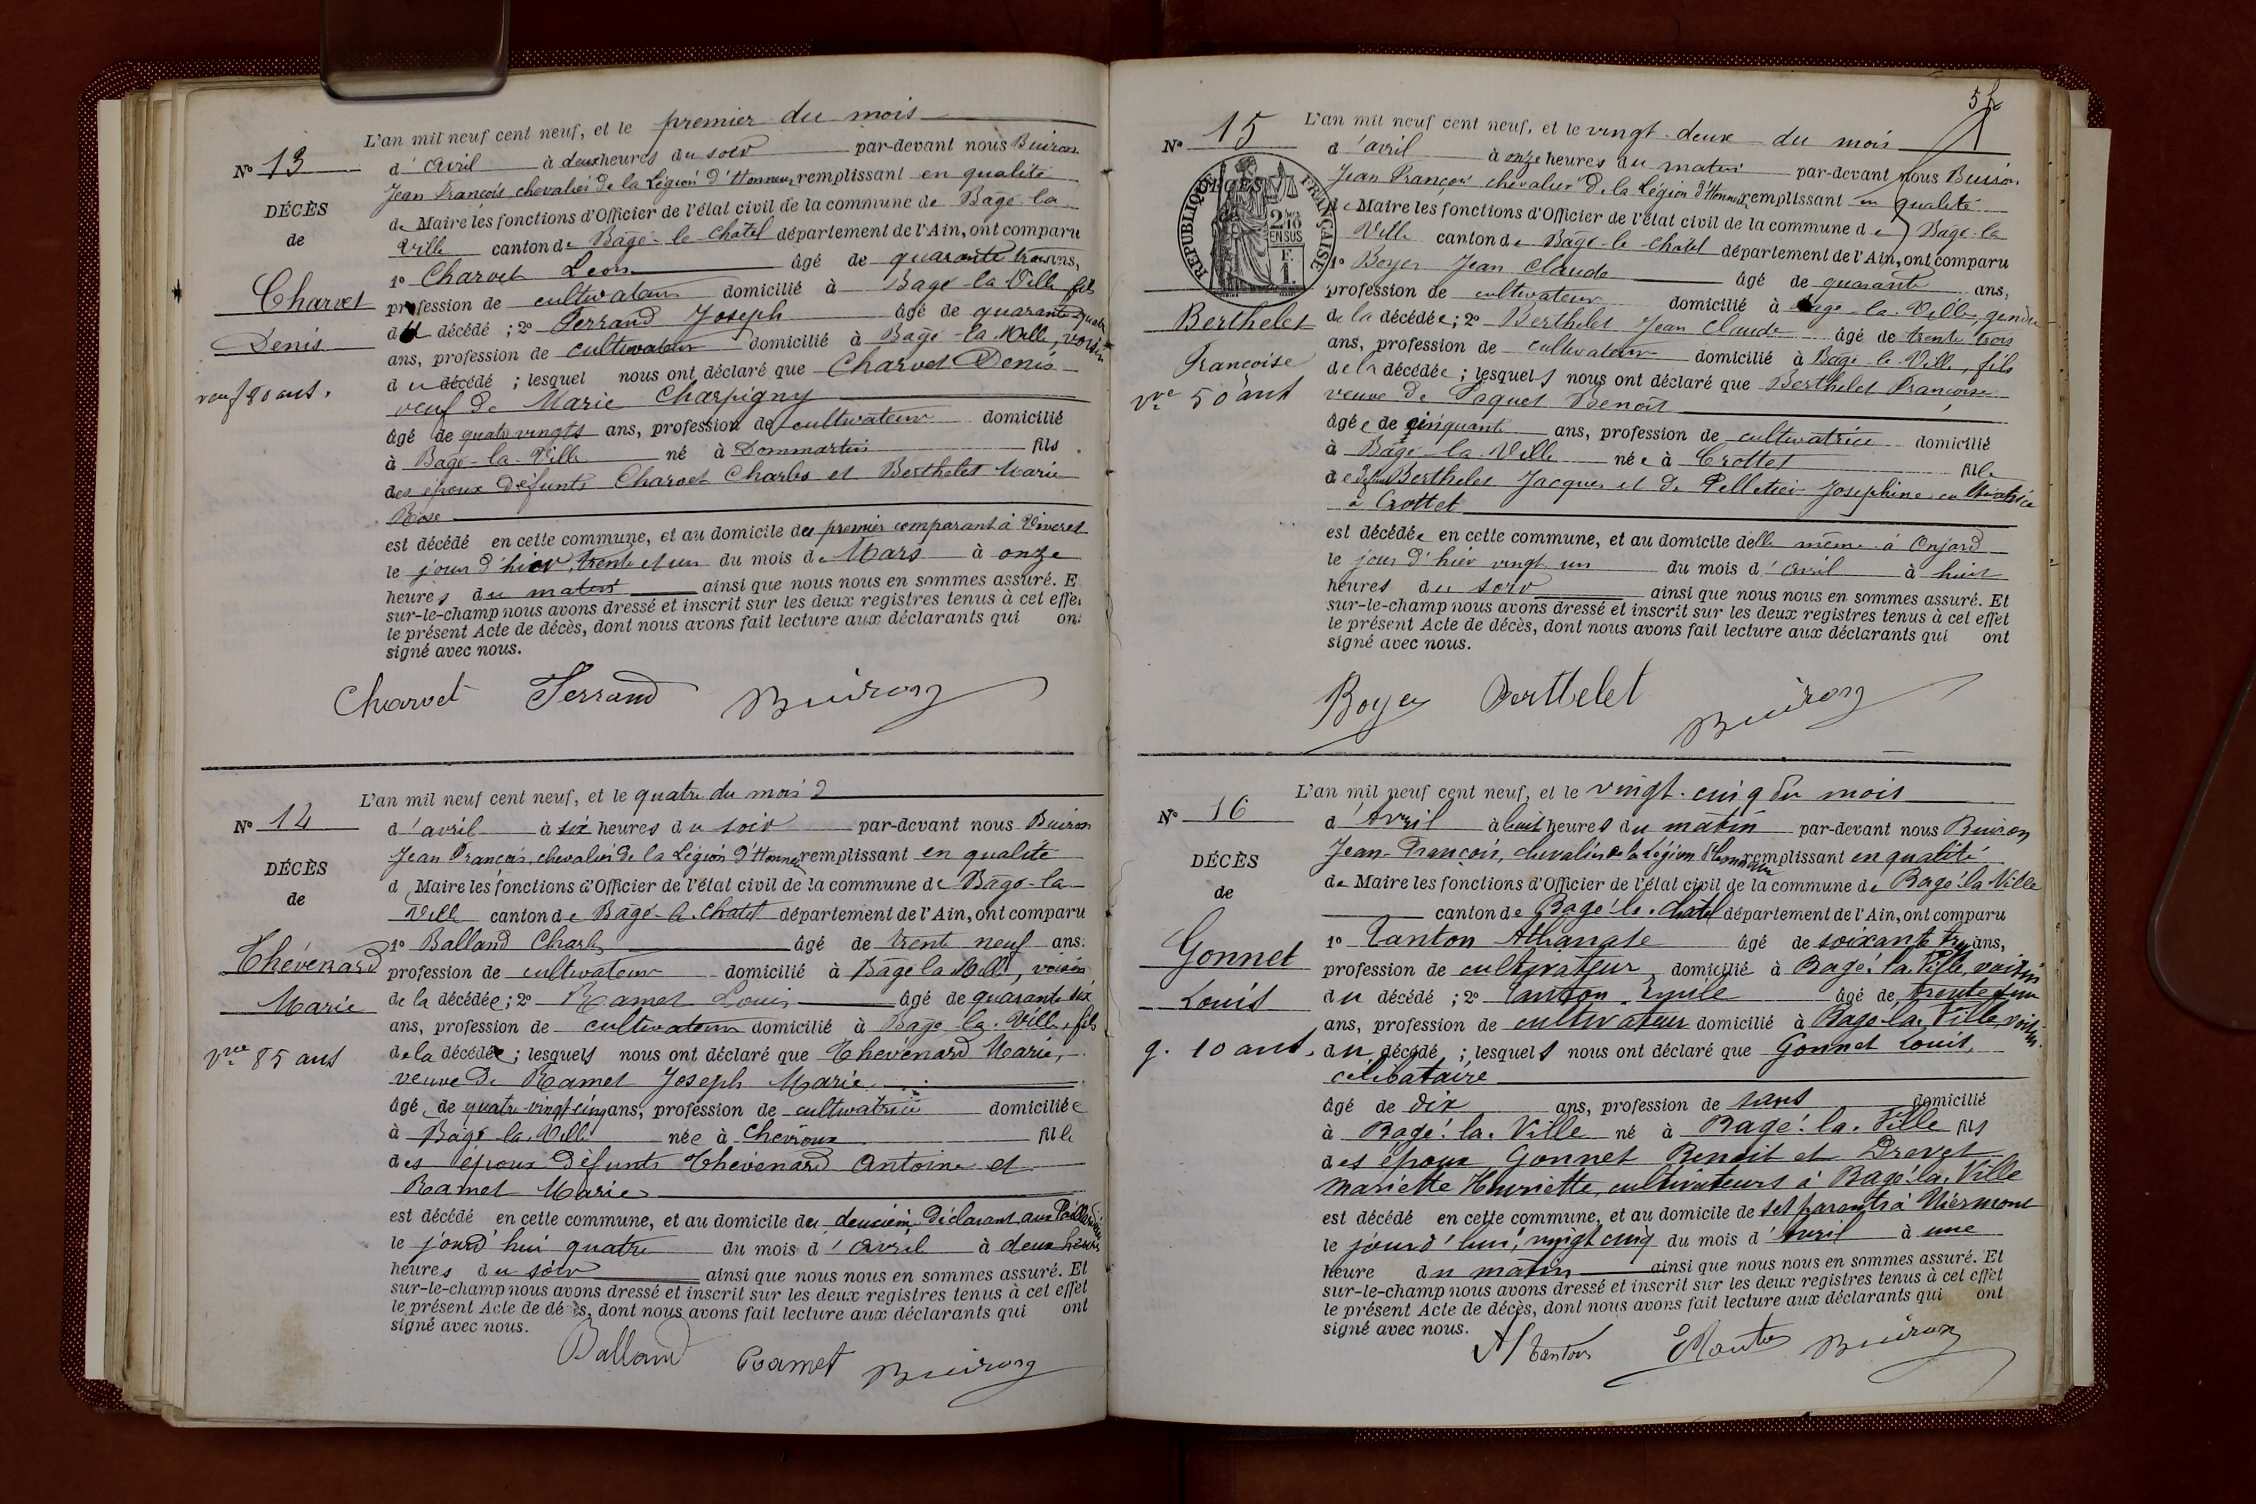 L'an mil neuf cent neuf, et le premier du mois
No 13
d'avril à deux heures du soir par-devant nous Buiron
Jean François, chevalier de la Légion d'Honneur, remplissant en qualité
de Maire les fonctions d'Officier de l'état civil de la commune de Bâgé-la
Ville canton de Bâgé-le-Chatel département de l'Ain, ont comparu
1o Charvet Léon âgé de quarante trois ans,
profession de cultivateur domicilié à Bâgé-la Ville fils
du décédé ; 2o Ferrand Joseph âgé de quarante quatre
ans, profession de cultivateur domicilié à Bâgé-la Ville, voisin
du décédé ; lesquel nous ont déclaré que Charvet Denis
veuf de Marie Charpigny
âgé de quatre vingts ans, profession de cultivateur domicilié
à Bâgé-la-Ville né à Dommartin fils
des époux défunts Charvet Charles et Berthelet Marie
Rose
est décédé en cette commune, et au domicile du premier comparant à
le jour d'hier, trente et un du mois de Mars à onze
heures du matin ainsi que nous nous en sommes assuré. E
sur-le-champ nous avons dressé et inscrit sur les deux registres tenus à cet effe
le présent Acte de décès, dont nous avons fait lecture aux déclarants qui on
signé avec nous.
DÉCÈS
de
Charvet
Denis
veuf 80 ans.
Charvet Ferrand Buiron
L'an mil neuf cent neuf, et le quatre du mois
No 14
d'avril à six heures du soir par-devant nous Buiron
Jean François, chevalier de la Légion d'Honneur remplissant en qualité
d Maire les fonctions d'Officier de l'état civil de la commune de Bâgé-la
Ville canton de Bâgé-le-Chatel département de l'Ain, ont comparu
1o Balland Charles âgé de trente neuf ans.
profession de cultivateur domicilié à Bâgé la Ville, voisin
de la décédée ; 2o Ramet Louis âgé de quarante six
ans, profession de cultivateur domicilié à Bâgé-la-Ville, fils
de la décédée ; lesquels nous ont déclaré que Thévenard Marie,
veuve de Ramet Joseph Marie
âgée de quatre-vingt cinq ans, profession de cultivatrice domiciliée
à Bâgé-la-Ville née à Chevroux fille
des époux défunts Thévenard Antoine et
Ramet Marie
est décédé en cette commune, et au domicile du deuxième déclarant, aux
le jourd'hui quatre du mois d'avril à deux heures
heures du soir ainsi que nous nous en sommes assuré. Et
sur-le-champ nous avons dressé et inscrit sur les deux registres tenus à cet effet
le présent Acte de décès, dont nous avons fait lecture aux déclarants qui ont
signé avec nous.
DÉCÈS
de
Thévenard
Marie
vve 85 ans
Balland Ramet Buiron
L'an mil neuf cent neuf, et le vingt-deux du mois
No 15
d'avril à onze heures du matin par-devant nous Buiron,
Jean François chevalier de la Légion d'Honneur remplissant en qualité
de Maire les fonctions d'Officier de l'état civil de la commune de Bâgé-la
Ville canton de Bâgé-le-Chatel département de l'Ain, ont comparu
1o Boyer Jean Claude âgé de quarante ans,
profession de cultivateur domicilié à Bâgé-la-Ville, gendre
de la décédée ; 2o Berthelet Jean Claude âgé de trente trois
ans, profession de cultivateur domicilié à Bâgé-la-Ville, fils
de la décédée ; lesquels nous ont déclaré que Berthelet Françoise
veuve de Paquet Benoît
âgée de cinquante ans, profession de cultivatrice domicilié
à Bâgé-la-Ville née à Crottet fille
de Berthelet Jacques et de Pelletier Joséphine cultivatrice
à Crottet
est décédée en cette commune, et au domicile d'elle même à Onjard
le jour d'hier vingt un du mois d'avril à huit
heures du soir ainsi que nous nous en sommes assuré. Et
sur-le-champ nous avons dressé et inscrit sur les deux registres tenus à cet effet
le présent Acte de décès, dont nous avons fait lecture aux déclarants qui ont
signé avec nous.
RÉPUBLIQUE FRANÇAISE
EN SUS
Berthelet
Françoise
vve 50 ans
Boyer Berthelet Buiron
L'an mil neuf cent neuf, et le vingt-cinq du mois
No 16
d'Avril à huit heures du matin par-devant nous Buiron
Jean-François, chevalier de la Légion d'honneur remplissant en qualité
de Maire les fonctions d'Officier de l'état civil de la commune de Bagé-la-Ville
canton de Bagé-le-Chatel département de l'Ain, ont comparu
1o Tanton Athanase âgé de soixante trois ans,
profession de cultivateur domicilié à Bagé-la-Ville, voisin
du décédé ; 2o Tanton Emile âgé de trente et un
ans, profession de cultivateur domicilié à Bagé-la-Ville, voisin
du décédé ; lesquels nous ont déclaré que Gonnet Louis,
célibataire
âgé de dix ans, profession de sans domicilié
à Bagé-la-Ville né à Bagé-la-Ville fils
des époux Gonnet Benoit et Drevet
Mariette Henriette, cultivateurs à Bagé-la-Ville
est décédé en cette commune, et au domicile de ses parents à
le jourd'hui, vingt cinq du mois d'Avril à une
heure du matin ainsi que nous nous en sommes assuré. Et
sur-le-champ nous avons dressé et inscrit sur les deux registres tenus à cet effet
le présent Acte de décès, dont nous avons fait lecture aux déclarants qui ont
signé avec nous.
DÉCÈS
de
Gonnet
Louis
g. 10 ans.
Tanton Buiron